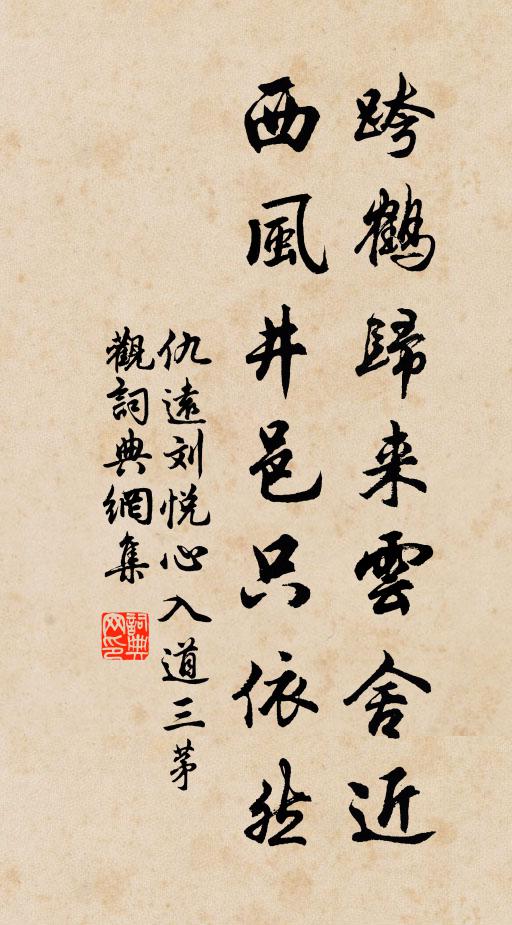 跨鶴歸来雲舍近
西風井邑只依然
仇遠刘悦心入道三茅
觀詞典網集
詞典
网印